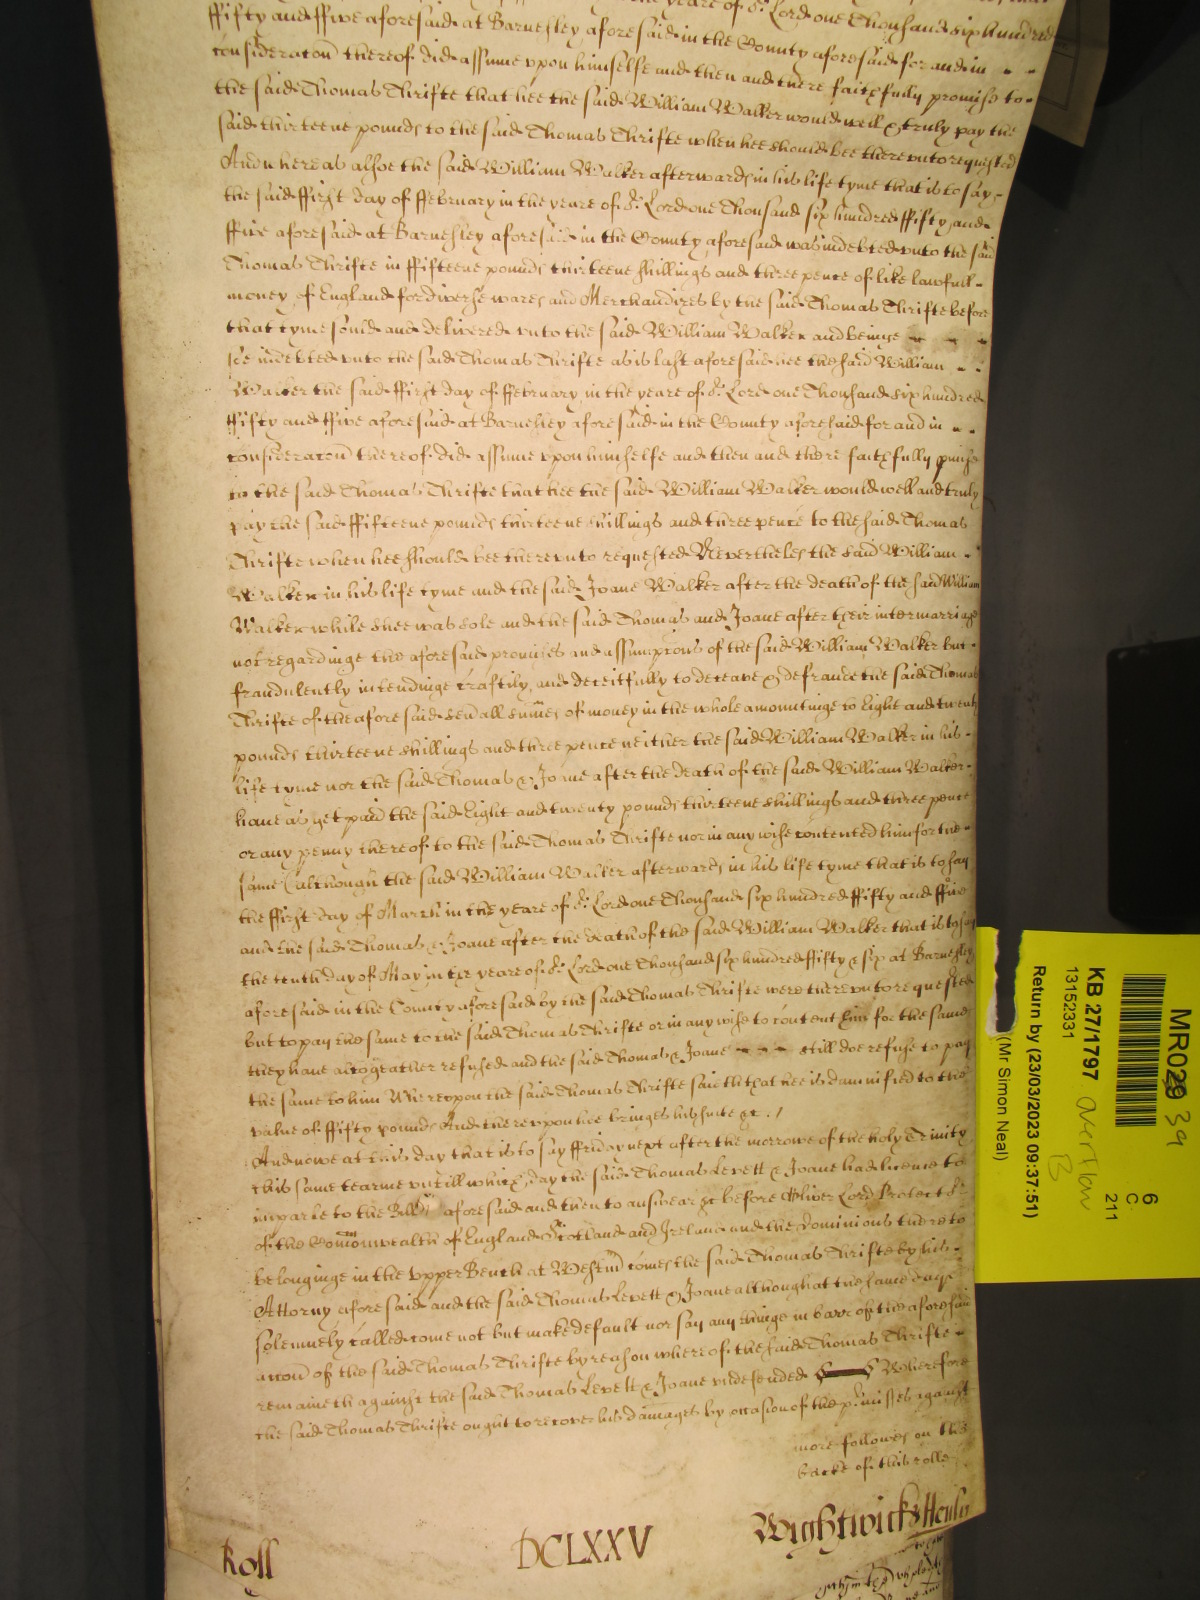 yeare of or Lord one Thousand six hundred
ffifty and ffive aforesaid at Barnesley aforesaid in the County aforesaid for and in
consideracon thereof did assume vpon himselfe and then and there faithfully promise to
the said Thomas Thrifte that hee the said William Walker would well & truly pay the
said thirteene pounds to the said Thomas Thrifte when hee should bee therevnto requested
And whereas alsoe the said William Walker afterwards in his life tyme that is to say
the said ffirst day of ffebruary in the yeare of or Lord one Thousand six hundred ffifty and
ffive aforesaid at Barnesley aforesaid in the County aforesaid was indebted vnto the said
Thomas Thrifte in ffifteene pounds thirteene shillings and three pence of like lawfull
money of England for diverse wares and Merchandizes by the said Thomas Thrifte before
that tyme sould and delivered vnto the said William Walker and beinge
soe indebted vnto the said Thomas Thrifte as is last aforesaid hee the said William
Walker the said ffirst day of ffebruary in the yeare of or Lord one Thousand six hundred
ffifty and ffive aforesaid at Barnesley aforesaid in the County aforesaid for and in
consideracon thereof did assume vpon himselfe and then and there faithfully pmise
to the said Thomas Thrifte that hee the said William Walker would well and truly
pay the said ffifteene pounds thirteene shillings and three pence to the said Thomas
Thrifte when hee should bee therevnto requested Neverthelesse the said William
Walker in his life tyme and the said Joane Walker after the death of the said William
Walker while shee was sole and the said Thomas and Joane after their intermarriage
not regardinge the aforesaid promises and assumpcons of the said William Walker but
fraudulently intendinge craftily and deceitfully to deceave & defraude the said Thomas
Thrifte of the aforesaid sevall sumes of money in the whole amountinge to Eight and twenty
pounds thirteene shillings and three pence neither the said William Walker in his
life tyme nor the said Thomas & Joane after the death of the said William Walker
have as yet paid the said Eight and twenty pounds thirteene shillings and three pence
or any penny thereof to the said Thomas Thrifte nor in any wise contented him for the
same (although the said William Walker afterwards in his life tyme that is to say
the ffirst day of March in the yeare of or Lord one Thousand six hundred ffifty and ffive
and the said Thomas & Joane after the death of the said William Walker that is to say
the tenth day of May in the yeare of or Lord one Thousand six hundred ffifty & six at Barnesley
aforesaid in the County aforesaid by the said Thomas Thrifte were therevnto requested
but to pay the same to the said Thomas Thrifte or in any wise to content him for the same
they have altogeather refused and the said Thomas & Joane still doe refuse to pay
the same to him Wherevpon the said Thomas Thrifte saith that hee is damnified to the
value of ffifty pounds And therevpon hee bringes his suite &c.
And nowe at this day that is to say ffriday next after the morrowe of the holy Trinity
this same tearme vntill which day the said Thomas Levett & Joane had licence to
imparle to the Bill aforesaid and then to answear &c before Oliver Lord Protector
of the Comonwealth of England Scotland and Ireland and the Dominions thereto
belonginge in the vpper Bench at Westmr comes the said Thomas Thrifte by his
Attorny aforesaid and the said Thomas Levett & Joane although at the same day
solemnely called come not but make default nor say any thinge in barr of the aforesaid
accon of the said Thomas Thrifte by reason whereof the said Thomas Thrifte
remaineth against the said Thomas Levett & Joane vndefended Wherefore
the said Thomas Thrifte ought to recover his damages by occasion of the pmisses against
more followes on the
backe of this rolle
Roll DCLXXV Wightwicke Henley
MR029 39
KB 27/1797 overflow
B
13152331
6
C
211
Return by (23/03/2023 09:37:51)
(Mr Simon Neal)